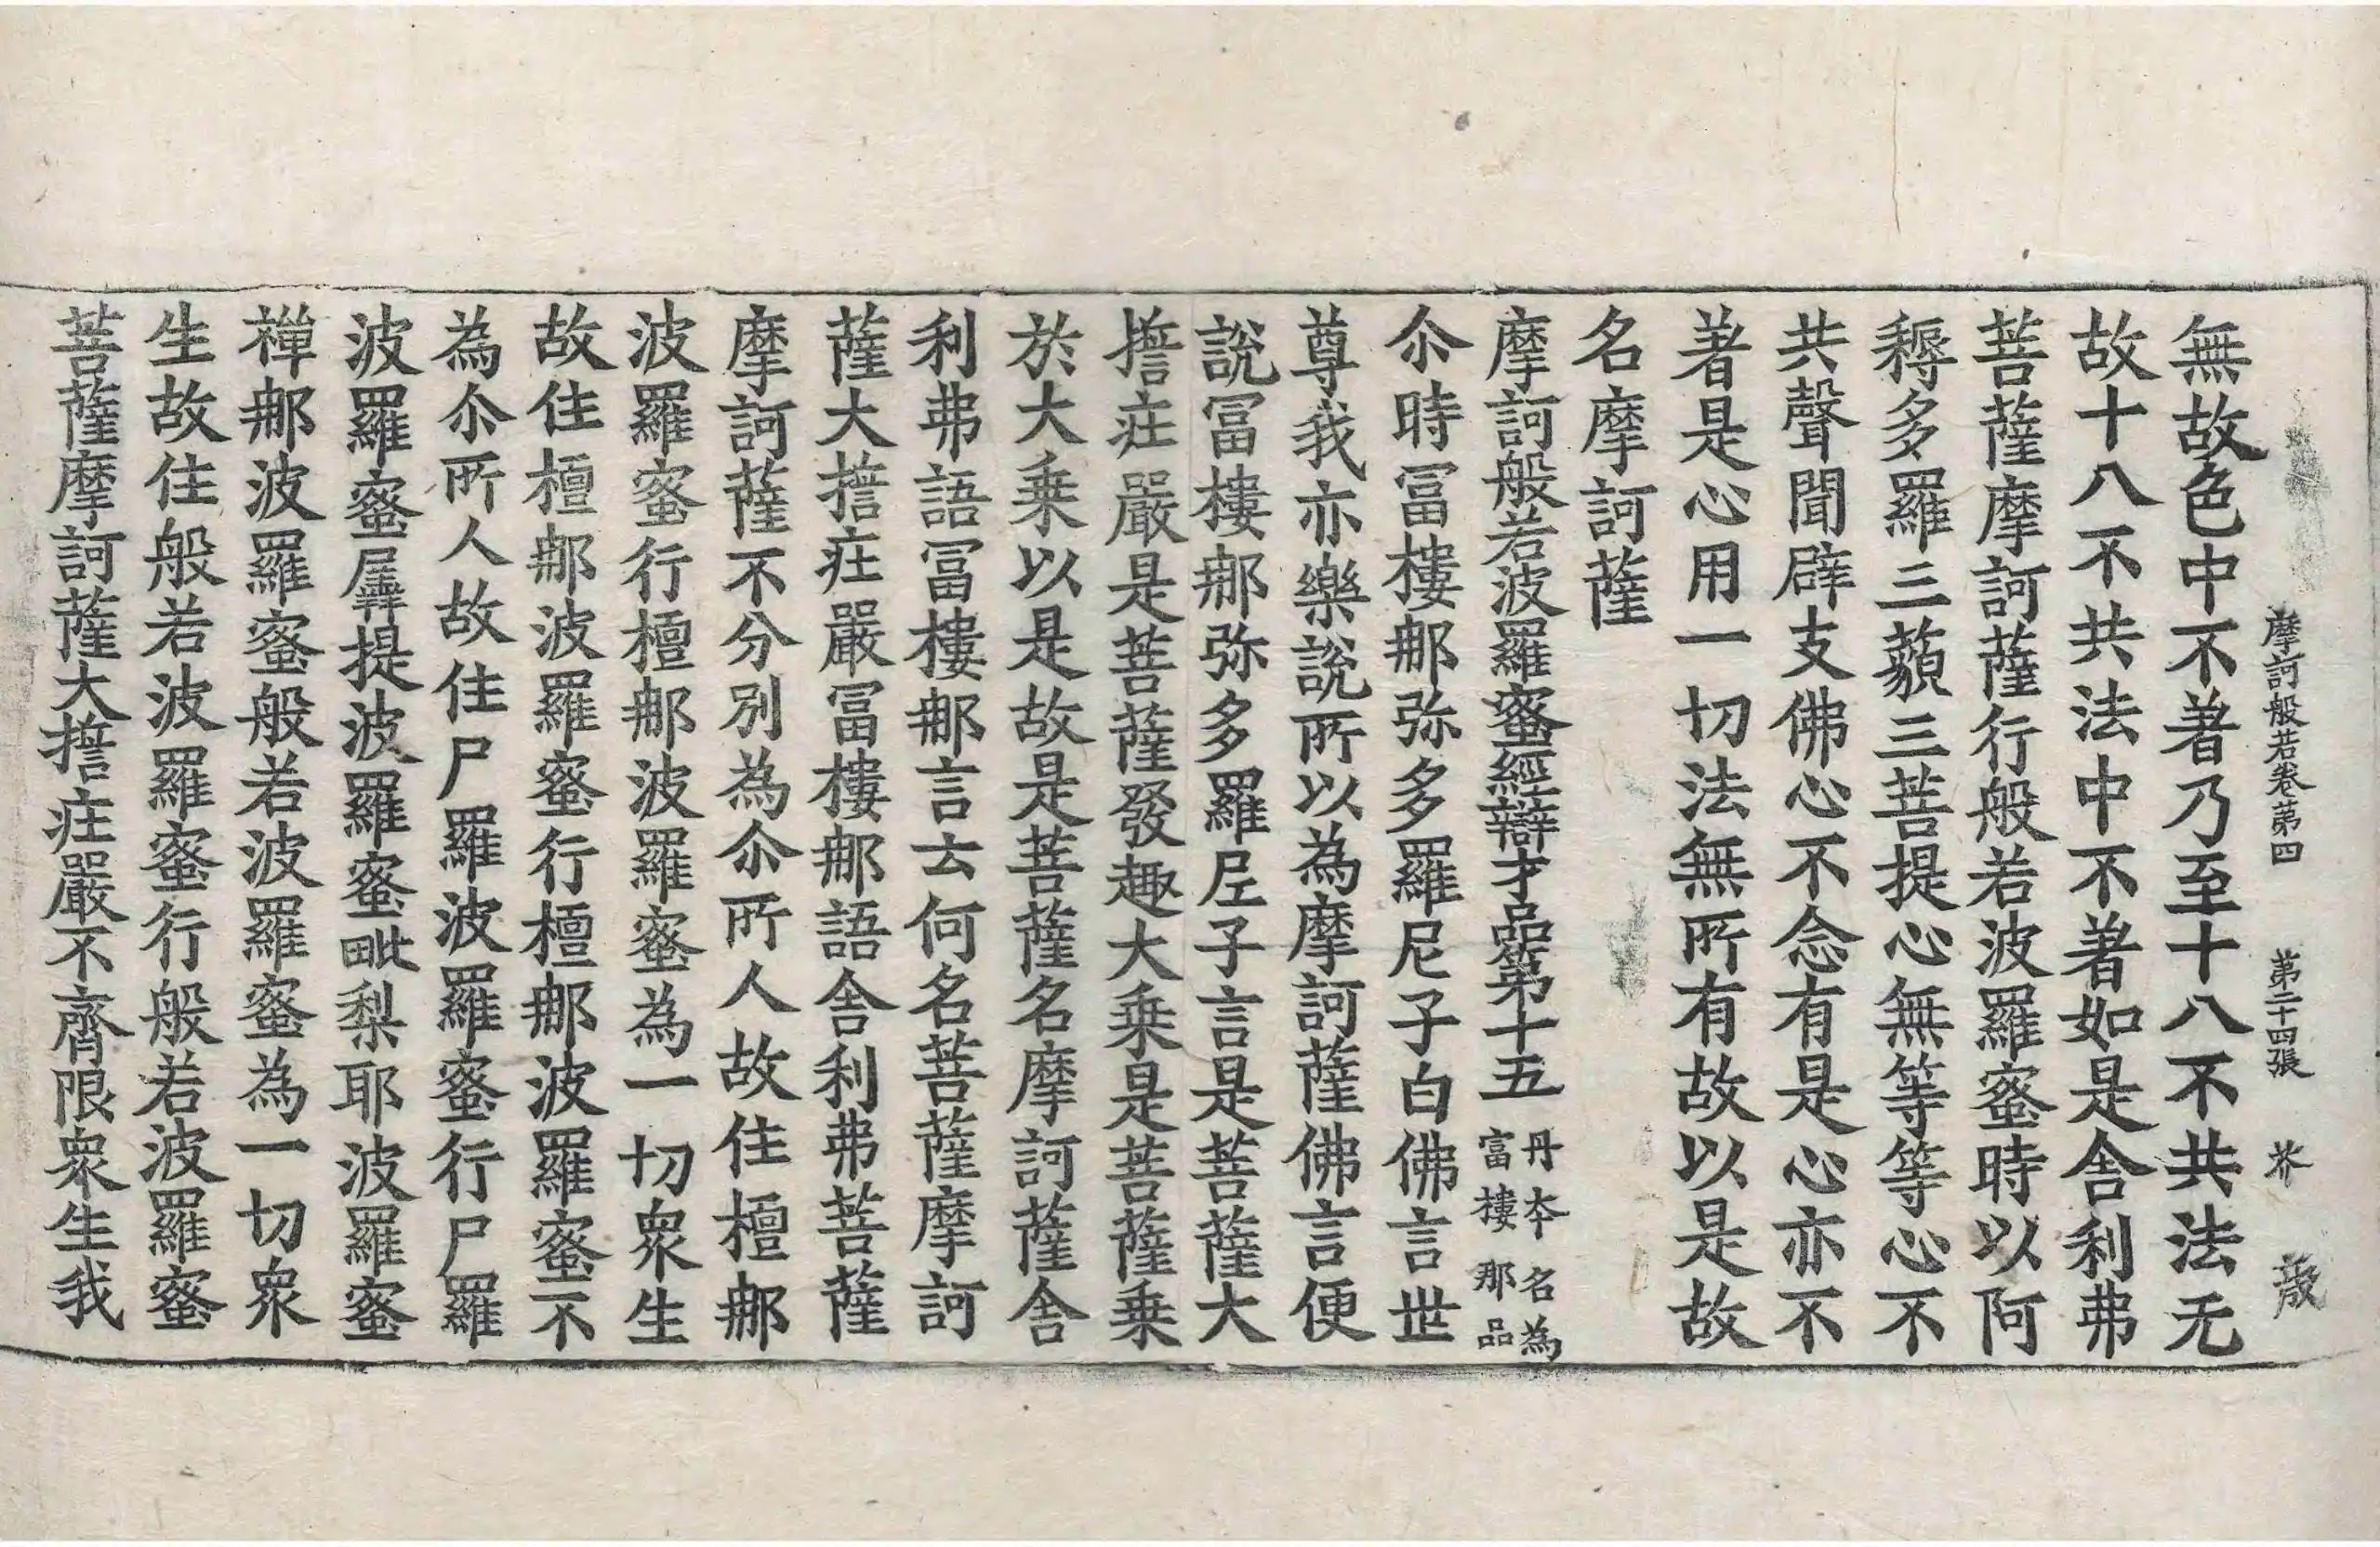 摩訶般若卷第四　第二十四張　芥
無故色中不著乃至十八不共法无
故十八不共法中不著如是舍利弗
菩薩摩訶薩行般若波羅蜜時以阿
耨多羅三藐三菩提心無等等心不
共聲聞辟支佛心不念有是心亦不
著是心用一切法無所有故以是故
名摩訶薩
摩訶般若波羅蜜經辯才品第十五 丹本名為富樓那品
尒時冨樓那弥多羅尼子白佛言世
尊我亦樂說所以為摩訶薩佛言便
說冨樓那弥多羅尼子言是菩薩大
擔莊嚴是菩薩發趣大乗是菩薩乗
於大乗以是故是菩薩名摩訶薩舍
利弗語冨樓那言云何名菩薩摩訶
薩大擔莊嚴冨樓那語舍利弗菩薩
摩訶薩不分別為尒所人故住檀那
波羅蜜行檀那波羅蜜為一切衆生
故住檀那波羅蜜行檀那波羅蜜不
為尒所人故住尸羅波羅蜜行尸羅
波羅蜜羼提波羅蜜毗梨耶波羅蜜
禪那波羅蜜般若波羅蜜為一切衆
生故住般若波羅蜜行般若波羅蜜
菩薩摩訶薩大擔莊嚴不齊限衆生我